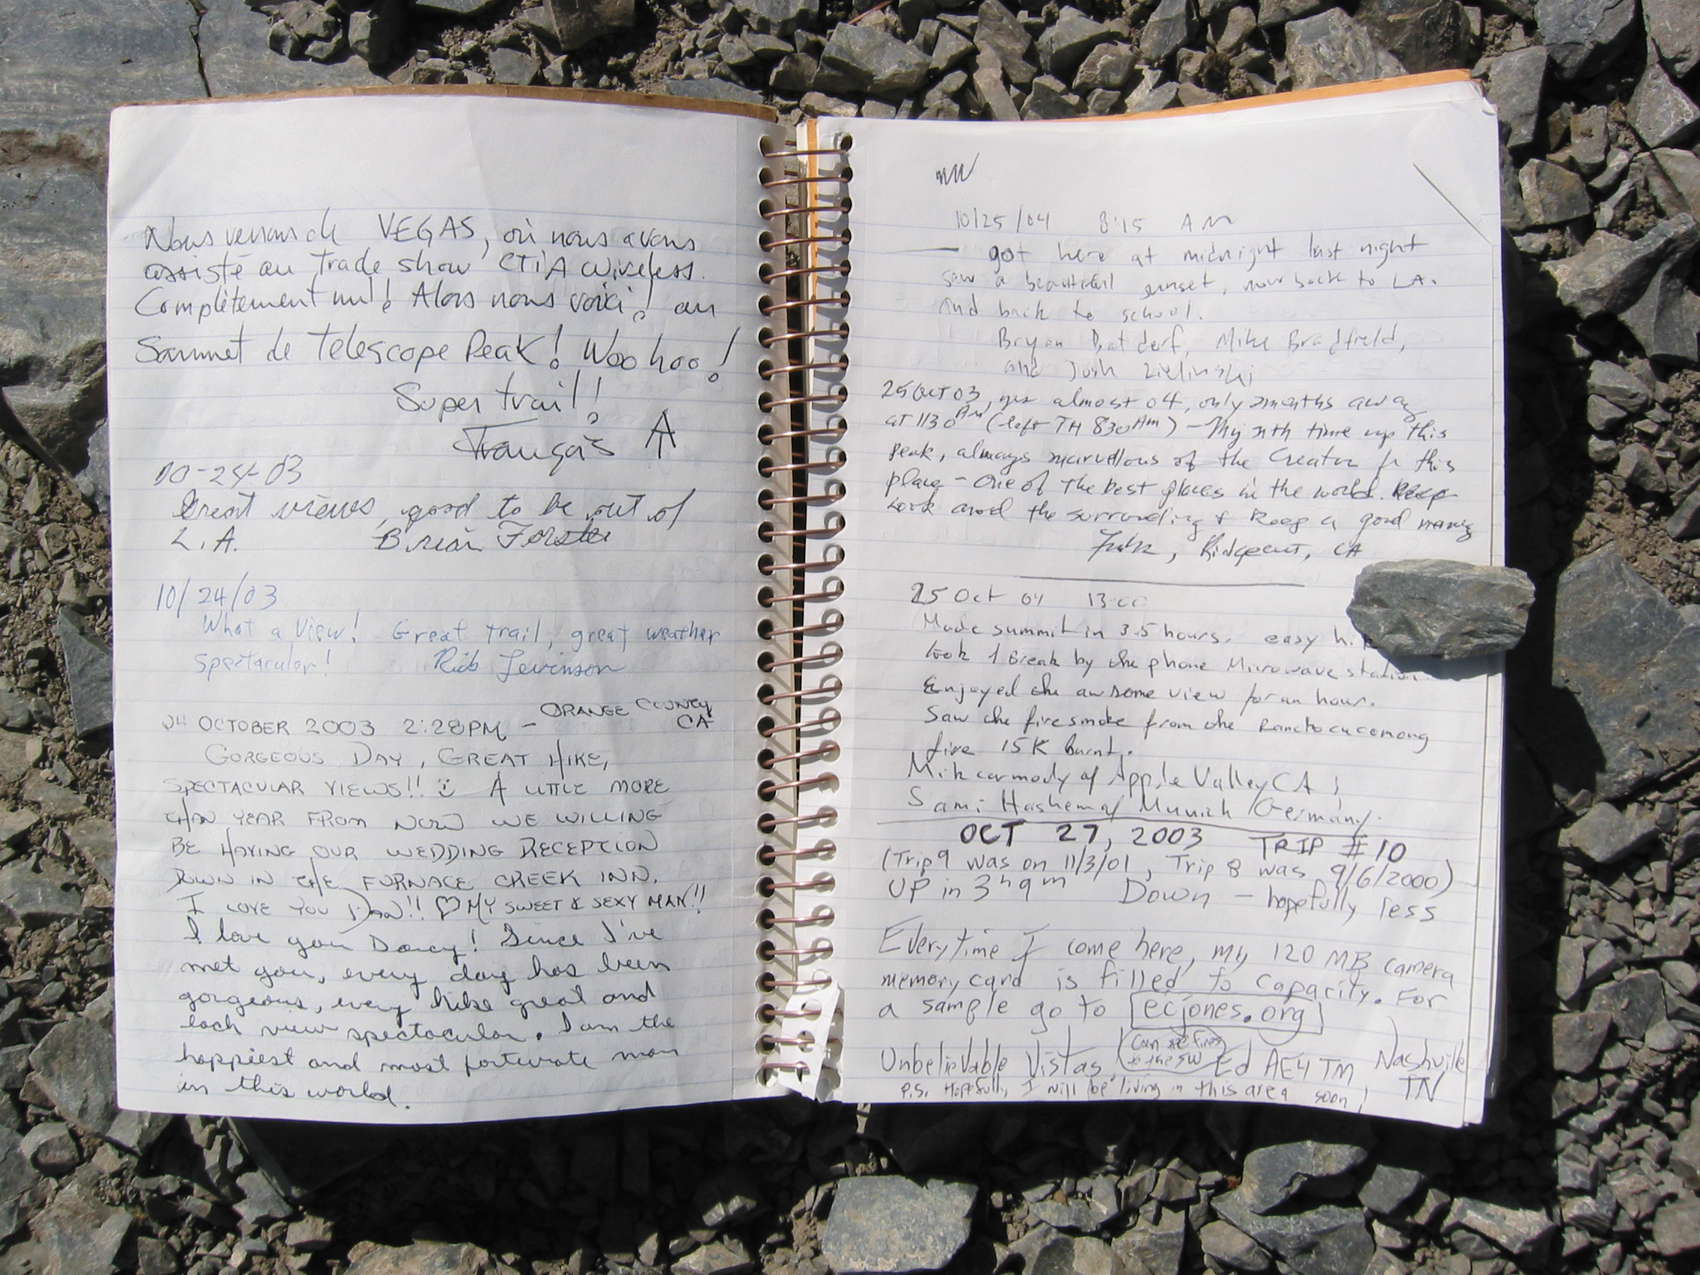 Nous venons de VEGAS, où nous avons
assisté au Trade show CTiA wireless.
Complètement nul! Alors nous voici, au
Sommet de Telescope Peak! Woohoo!
Super trail!
François A
10-24-03
Great views, good to be out of
L.A. Brian Forster
10/24/03
What a View! Great trail, great weather
spectacular! Rick Levinson
24 OCTOBER 2003 2:28PM - ORANGE COUNTY
CA
GORGEOUS DAY, GREAT HIKE,
SPECTACULAR VIEWS!! A LITTLE MORE
THAN YEAR FROM NOW WE WILLING
BE HAVING OUR WEDDING RECEPTION
DOWN IN THE FURNACE CREEK INN.
I LOVE YOU DAN!! ♡ MY SWEET & SEXY MAN!!
I love you Darcy! Since I've
met you, every day has been
gorgeous, every hike great and
each view spectacular. I am the
happiest and most fortunate man
in this world.
10/25/04 8:15 AM
— got here at midnight last night
saw a beautiful sunset, now back to LA.
and back to school.
Bryan Mike Bradfield,
and Josh Zielinski
25 OCT 03, yes almost 04, only 2 months away
at 1130 AM (left TH 830 AM) - My nth time up this
peak, always marvellous of the Creator for this
place - One of the best places in the world.
Look around the surrounding & keep a good
Ridgecrest, CA
25 Oct 04 13:00
Made summit in 3.5 hours. easy
took 1 Break by the phone Microwave station
Enjoyed the awsome view for an hour.
Saw the fire smoke from the Ranchocucamong
fire 15K burnt.
Mik carmody of Apple Valley CA ;
Sami Hashem of Munich / Germany.
OCT 27, 2003 TRIP #10
(Trip 9 was on 11/3/01, Trip 8 was 9/6/2000)
UP in 3h 9m Down - hopefully less
Everytime I come here, my 120 MB camera
memory card is filled to capacity. For
a sample go to ecjones.org
Can see fires
to the SW
Unbelievable Vistas, Ed AE4TM, Nashville
TN
P.S. Hopefully I will be living in this area soon!